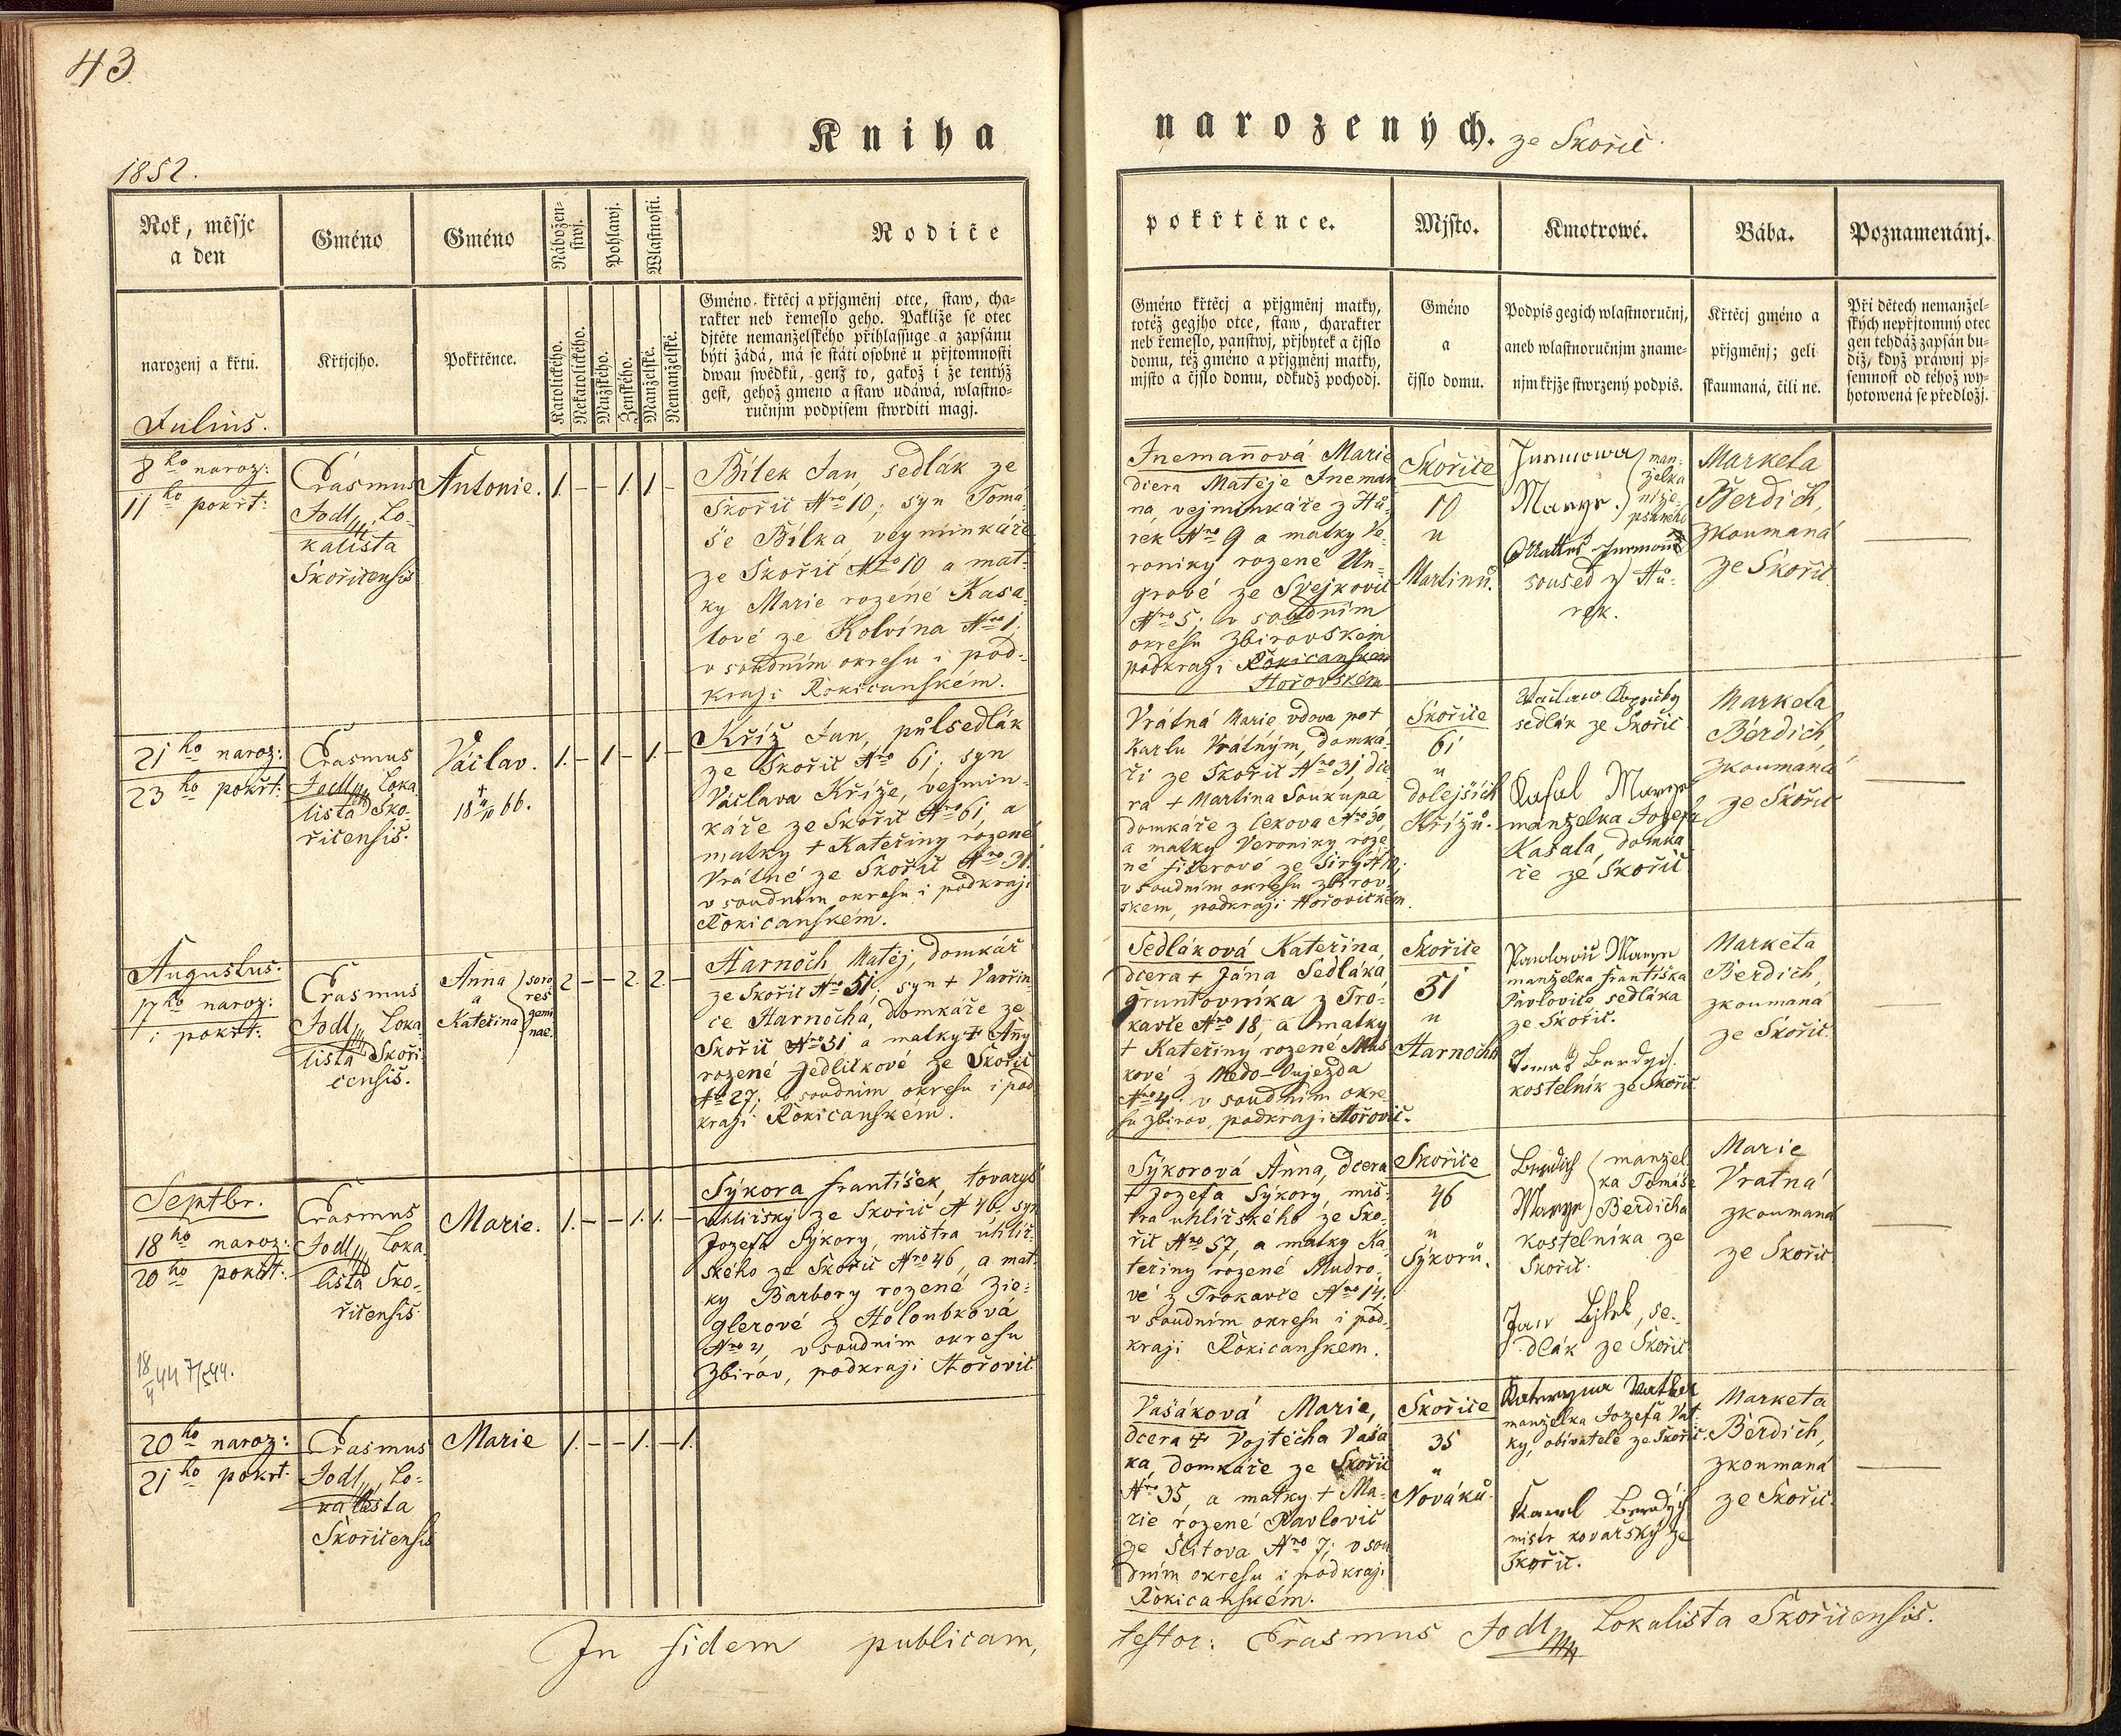 43.
Kniha
1852.
Rok, měsjc
a den
Gméno
Gméno
Nábožen-
stwj.
Pohlawj.
Wlastnosti.
Rodiče
narozenj a křtu.
Křtjcjho.
Pokřtěnce.
Katolického.
Nekatolického.
Mužského.
Ženského.
Manželské.
Nemanželské.
Gméno křtěcj a přjgměnj otce, staw, cha-
rakter neb řemeslo geho. Pakliže se otec
djtěte nemanželského přihlassuge a zapsánu
býti žádá, má se státi osobně u přjtomnosti
dwau swědků, genž to, gakož i že tentýž
gest, gehož gmeno a staw udáwá, wlastno-
ručnjm podpisem stwrditi magj.
Julius.
8ho naroz:
11ho pokřt:
Erasmus
Jodl, Lo-
kalista
Skořicensis
Antonie.
1. – – 1. 1. –
Bílek Jan, sedlák ze
Skořic Nro 10; syn Tomá-
še Bílka vejminkáře
ze Skořic Nro 10 a mat-
ky Marie rozéné Kasa-
lové ze Kolvína Nro 1.
v soudním okresu i pod-
kraji Rokicanském.
21ho naroz:
23ho pokřt:
Erasmus
Jodl, Loka
lista Sko-
řicensis.
Václav.
1. – 1. – 1. –
Kříž Jan, půlsedlák
ze Skořic Nro 61; syn
Václava Kříže, vejmin-
káře ze Skořic Nro 61, a
matky + Kateřiny rozené
Vrátné ze Skořic Nro 31.
v soudním okresu i podkraji
Rokicanském.
Augustus.
17ho naroz:
i pokřt:
Erasmus
Jodl, Loka
lista Skoři-
censis.
Anna
a
Kateřina
soro
res
gemi
nae.
2 – – 2. 2. –
Harnoch Matěj, domkář
ze Skořic Nro 51; syn + Vavřin-
ce Harnocha, domkáře ze
Skořic Nro 51 a matky + Añy
rozené Jedličkové ze Skořic
Nro 27; v soudním okresu i pod
kraji Rokicanském.
Septbr.
18ho naroz:
20ho pokřt:
Erasmus
Jodl, Loka
lista Sko-
řicensis
Marie.
1. – – 1. 1. –
Sýkora František, tovaryš
uhlířský ze Skořic N 46. syn
Jozefa Sýkory, mistra uhlíř-
ského ze Skořic Nro 46, a mat-
ky Barbory rozené Zie-
glerové z Holoubková
v soudním okresu
Zbirov, podkraji Hořovic.
20ho naroz:
21ho pokřt:
Erasmus
Jodl, Lo-
kalista
Skořicensis
Marie
1. – – 1. – 1.
In fidem publicam,
narozených. ze Skořic.
pokřtěnce.
Mjsto.
Kmotrowé.
Bába.
Poznamenánj.
Gméno křtěcj a přjgměnj matky,
totéž gegjho otce, staw, charakter
neb řemeslo, panstwj, přjbytek a čjslo
domu, též gméno a přjgměnj matky,
mjsto a čjslo domu, odkudž pochodj.
Gméno
a
čjslo domu.
Podpis gegich wlastnoručnj,
aneb wlastnoručnjm zname-
njm křjže stwrzený podpis.
Křtěcj gméno a
přjgměnj; geli
skaumaná, čili ne.
Při dětech nemanžel-
ských nepřjtomný otec
gen tehdáž zapsán bu-
diž, když práwnj pj-
semnost od téhož wy-
hotowená se předložj.
Jnemañová Marie
dcera Matěje Jneman
na, vejminkáře z Hů-
rek Nro 9 a matky Ve-
roniky rozené Un-
grové ze Svejkovic
Nro 5; v soudním
okresu Zbirovském
podkraji Rokicanském
Hořovském
Skořice
10
u
Martinů.
man-
želka
soused z Hů-
rek.
Marketa
Berdich,
zkoumaná
ze Skořic
Vrátná Marie vdova po +
Karlu Vrátným, domká-
ři ze Skořic Nro 31, dce-
ra + Martina Soukupa
domkáře z Cekova Nro 30,
a matky Veroniky roze-
né Fišerové ze Sirý
v soudním okresu Zbirov-
skem, podkraji Hořovickém.
Skořice
61
u
dolejších
Křížů.
sedlák ze Skořic
manželka Josefa
Kasala, domka
ře ze Skořic
Marketa
Berdich,
zkoumaná
ze Skořic
Sedláková Kateřina,
dcera + Jána Sedláka,
gruntovníka z Tro-
kavce Nro 18, a matky
+ Kateřiny rozené Maš
kové z Medo-Vujezda
Nro 4. v soudním okre-
su Zbirov, podkraji Hořovic.
Skořice
51
u
Harnochů
manželka Františka
Pavlovice sedláka
ze Skořic.
kostelník ze Skořic.
Marketa
Berdich,
zkoumaná
ze Skořic.
Sýkorová Anna, dcera
+ Jozefa Sýkory, mis-
tra uhlířského ze Sko-
řic Nro 57, a matky Ka
teřiny rozené Mudro-
vé z Trokavce Nro 14.
v soudním okresu i pod-
kraji Rokicanskem.
Skořice
46
u
Sýkorů.
Berdich
Marye
manžel
ka Tomáše
Berdicha
kostelníka ze
Skořic.
Jan Bjlek, se-
dlák ze Skořic
Marie
Vratná
zkoumaná
ze Skořic
Vašáková Marie,
dcera + Vojtěcha Vaša
ka, domkáře ze Skořic
Nro 35, a matky + Ma-
rie rozené Pavlovic
ze Štítova Nro 7; v sou
dním okresu i podkraji
Rokicanském.
Skořice
35
u
Nováků.
manželka Jozefa Vat-
ky, obivatele ze Skořic.
Karel Berdych
mistr kovařský ze
Skořic.
Marketa
Berdich,
zkoumaná
ze Skořic.
testor: Erasmus Jodl, Lokalista Skořicensis.